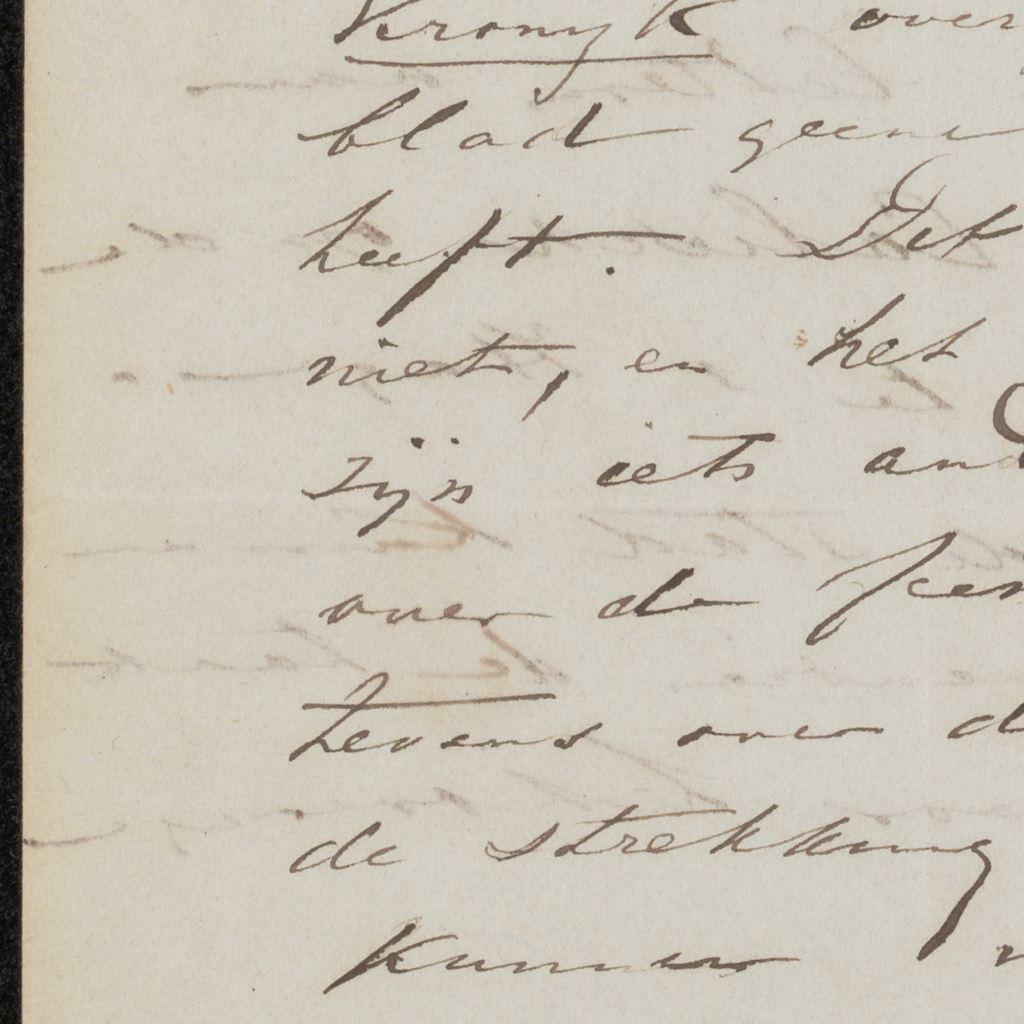 Kronyk over
blad geene
heeft. Dit
niet, en het
zijn iets and
over de
tevens over d
de strekking
kunnen